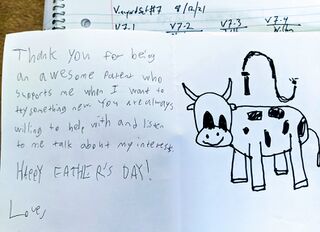 Vineyard Set #7 8/12/21
V7-1 V7-2 V7-3 V7-4
Thank you for being
an awesome parent who
supports me when I want to
try something new. You are always
willing to help with and listen
to me talk about my interest.
HAPPY FATHER'S DAY!
Love,